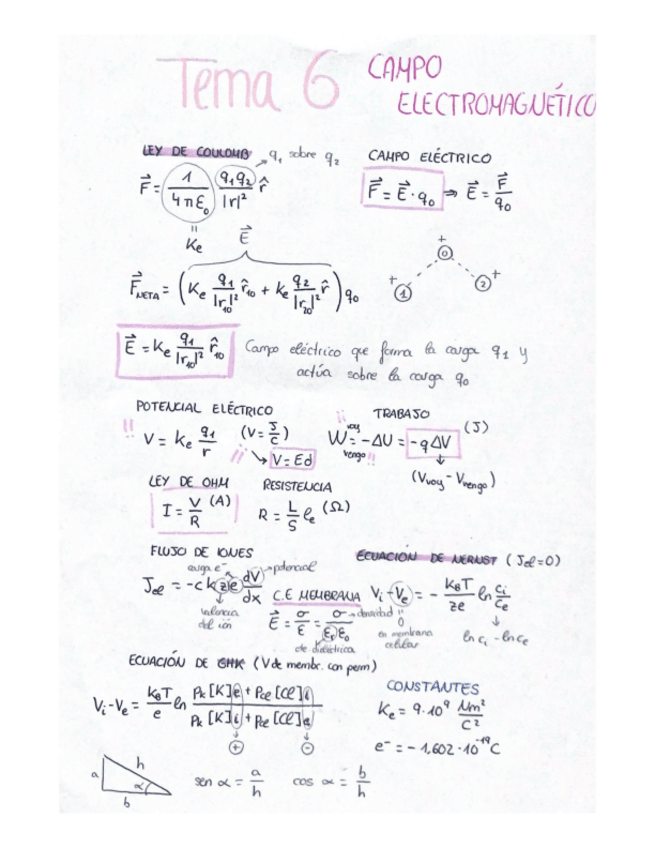 Tema 6 CAMPO ELECTROMAGNÉTICO
LEY DE COULOMB → q₁ sobre q₂
F⃗ = 1/(4πε₀) q₁q₂/|r|² r̂
= Ke
CAMPO ELÉCTRICO
F⃗ = E⃗·q₀ ⇒ E⃗ = F⃗/q₀
E⃗
F⃗NETA = (Ke q₁/|r₁₀|² r̂₁₀ + Ke q₂/|r₂₀|² r̂) q₀
+ 0
+ 1
2 +
E⃗ = Ke q₁/|r₁₀|² r̂₁₀ Campo eléctrico que forma la carga q₁ y
actúa sobre la carga q₀
POTENCIAL ELÉCTRICO
!! V = Ke q₁/r (V = J/C)
!! ↳ V = Ed
TRABAJO
¡¡ voy
W = -ΔU = -qΔV (J)
vengo !!
(Vvoy - Vvengo)
LEY DE OHM
I = V/R (A)
RESISTENCIA
R = L/S ρe (Ω)
FLUJO DE IONES
carga e⁻ → potencial
Jel = -c k z e dV/dx
valencia del ión
C.E MEMBRANA
E⃗ = σ/ε = σ/(εr ε₀) → densidad
cte dieléctrica
ECUACIÓN DE NERNST (Jel=0)
Vi - Ve = - KBT/ze ln ci/ce
= 0
en membrana celular
ln ci - ln ce
ECUACIÓN DE GHK (V de membr. con perm)
Vi - Ve = KBT/e ln (PK [K]e + PCl [Cl]i)/(PK [K]i + PCl [Cl]e)
+ -
CONSTANTES
Ke = 9·10⁹ Nm²/C²
e⁻ = -1,602·10⁻¹⁹C
a h α b
sen α = a/h cos α = b/h